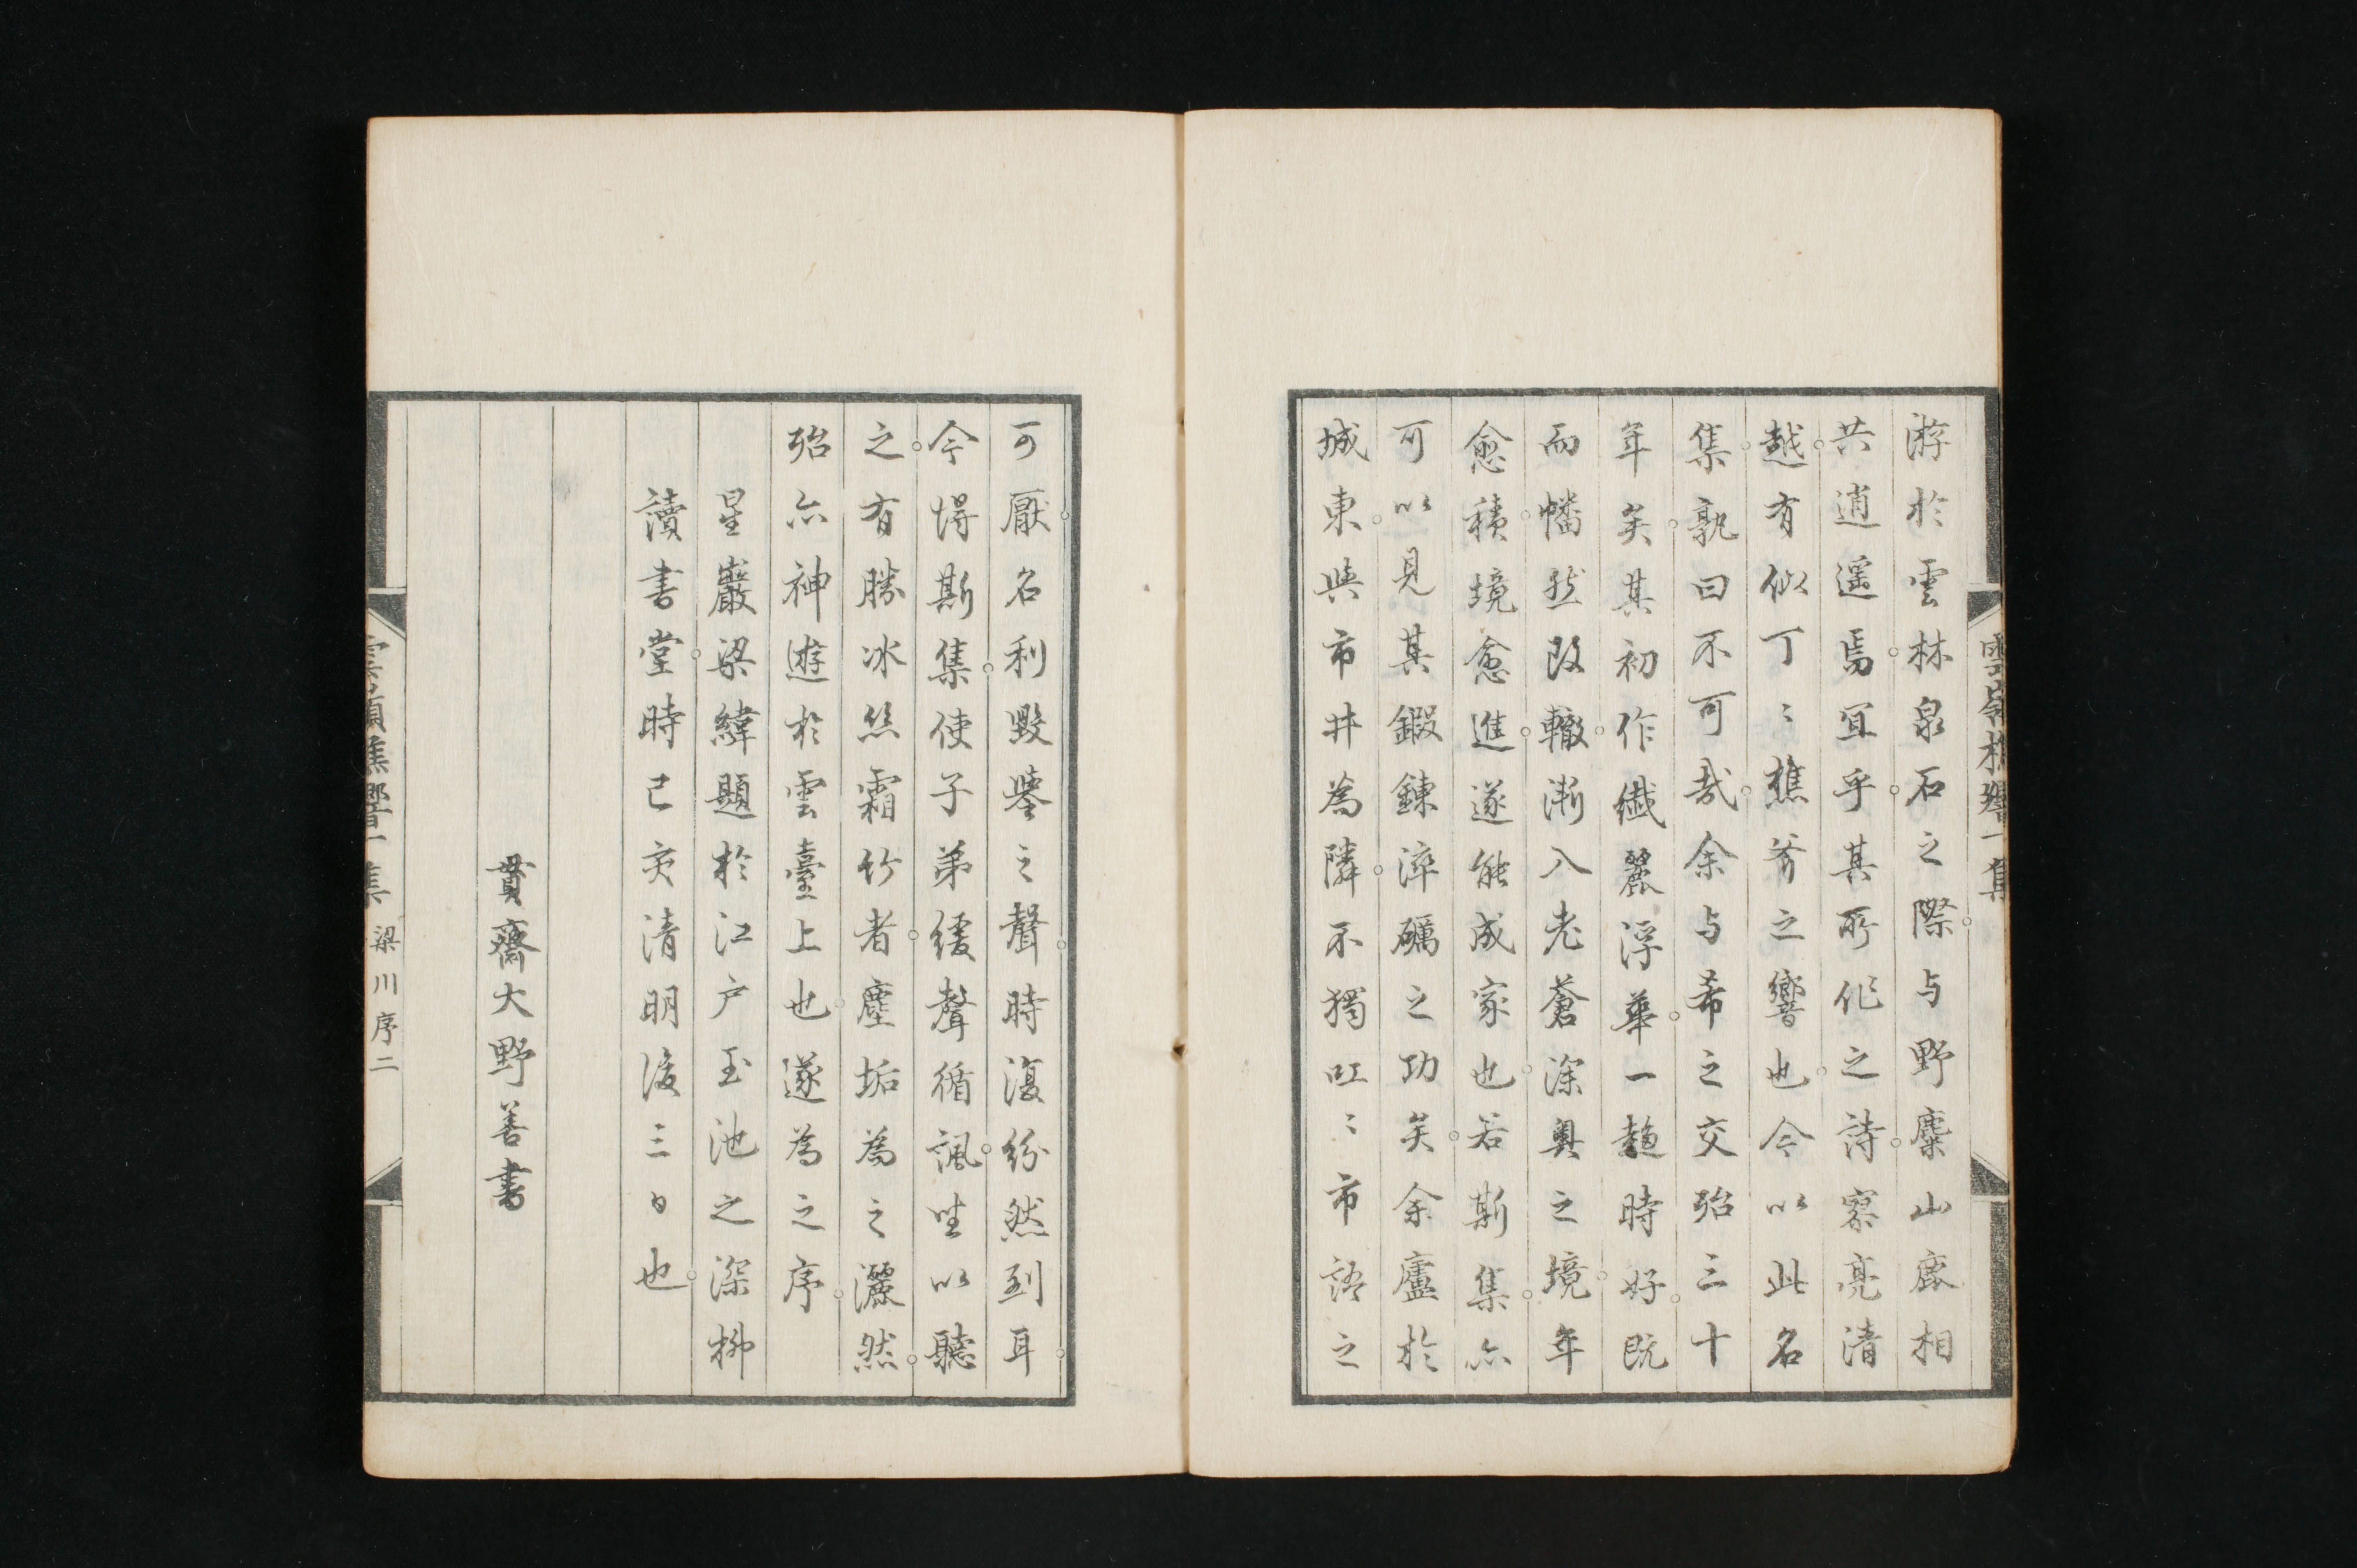 雲嶺樵響一集
游於雲林泉石之際与野麋山鹿相
共逍遥焉宜乎其所作之詩寥亮清
越有似丁〻樵斧之響也今以此名
集孰曰不可哉余与希之交殆三十
年矣其初作纎麗浮華一趨時好既
而幡然改轍漸入老蒼深奥之境年
愈積境愈進遂能成家也若斯集亦
可以見其鍛鍊淬礪之功矣余廬於
城東與市井為隣不獨吐〻市語之
可厭名利毀譽之聲時復紛然到耳
今得斯集使子弟緩聲循諷坐以聽
之有勝冰絲霜竹者塵垢為之灑然
殆亦神遊於雲臺上也遂為之序
星巖梁緯題於江戸玉池之深柳
讀書堂時己亥清明後三日也
貫齋大野善書
雲嶺樵響一集 梁川序二